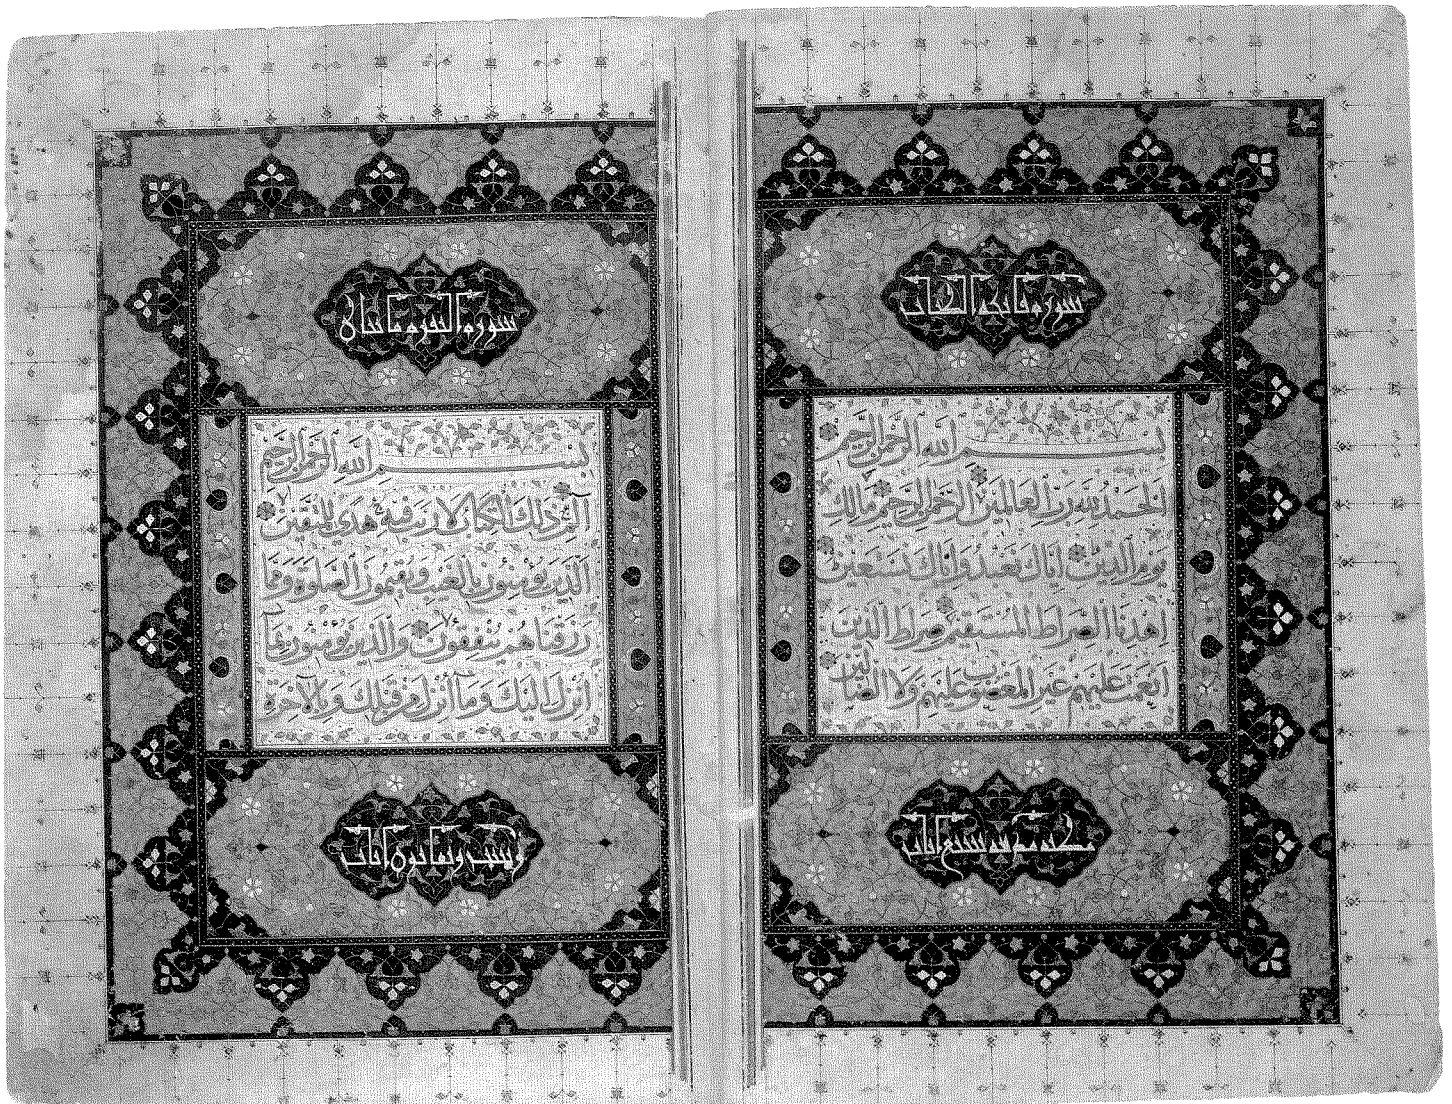 سورة فاتحة الكتاب
بسم الله الرحمن الرحيم
الحمد لله رب العالمين الرحمن الرحيم مالك
يوم الدين اياك نعبد واياك نستعين
اهدنا الصراط المستقيم صراط الذين
انعمت عليهم غير المغضوب عليهم ولا الضالين
سبع ايات
سورة البقرة مائتان
بسم الله الرحمن الرحيم
الم ذلك الكتاب لا ريب فيه هدى للمتقين
الذين يؤمنون بالغيب ويقيمون الصلوة ومما
رزقناهم ينفقون والذين يؤمنون بما
انزل اليك وما انزل من قبلك وبالاخرة
وثمانون ايات